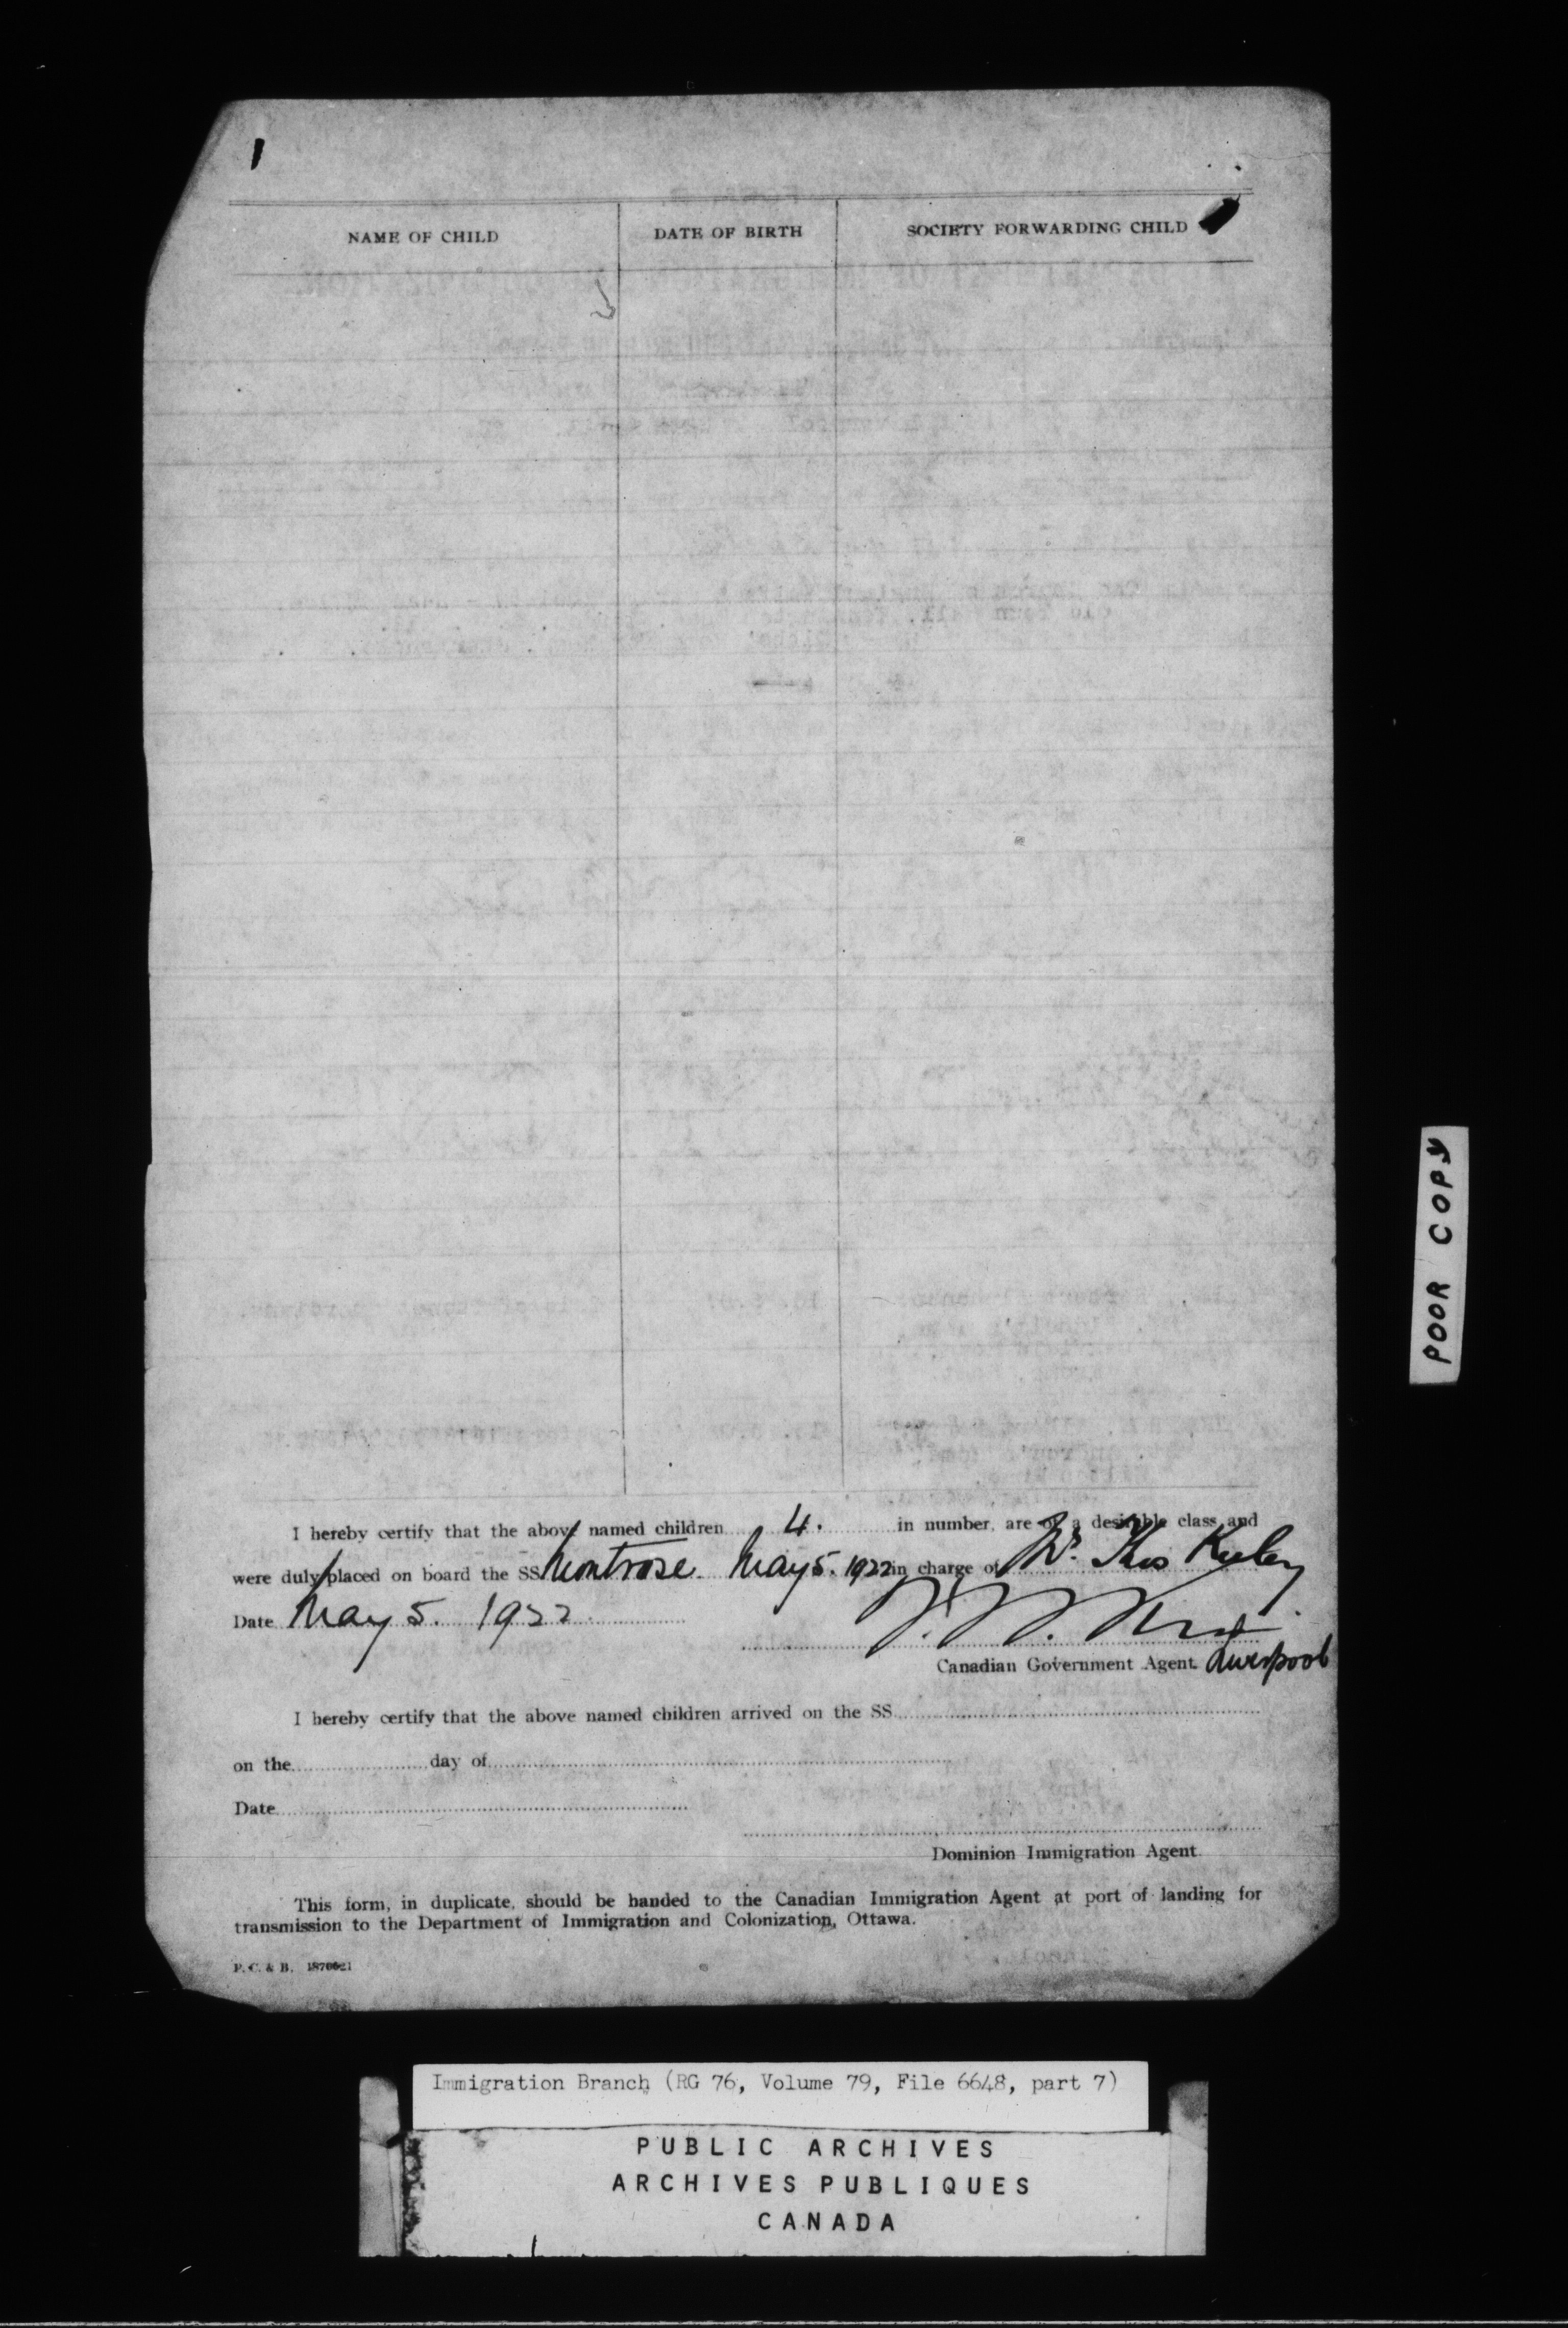 NAME OF CHILD DATE OF BIRTH SOCIETY FORWARDING CHILD
I hereby certify that the above named children 4. in number, are of a desirable class and
were duly placed on board the SS Montrose May 5. 1922 in charge of Mr. Thos Keeley
Date May 5. 1922
Canadian Government Agent. Liverpool
I hereby certify that the above named children arrived on the SS
on the day of
Date
Dominion Immigration Agent
This form, in duplicate, should be handed to the Canadian Immigration Agent at port of landing for
transmission to the Department of Immigration and Colonization, Ottawa.
P. C. & B.
POOR COPY
Immigration Branch (RG 76, Volume 79, File 6648, part 7)
PUBLIC ARCHIVES
ARCHIVES PUBLIQUES
CANADA